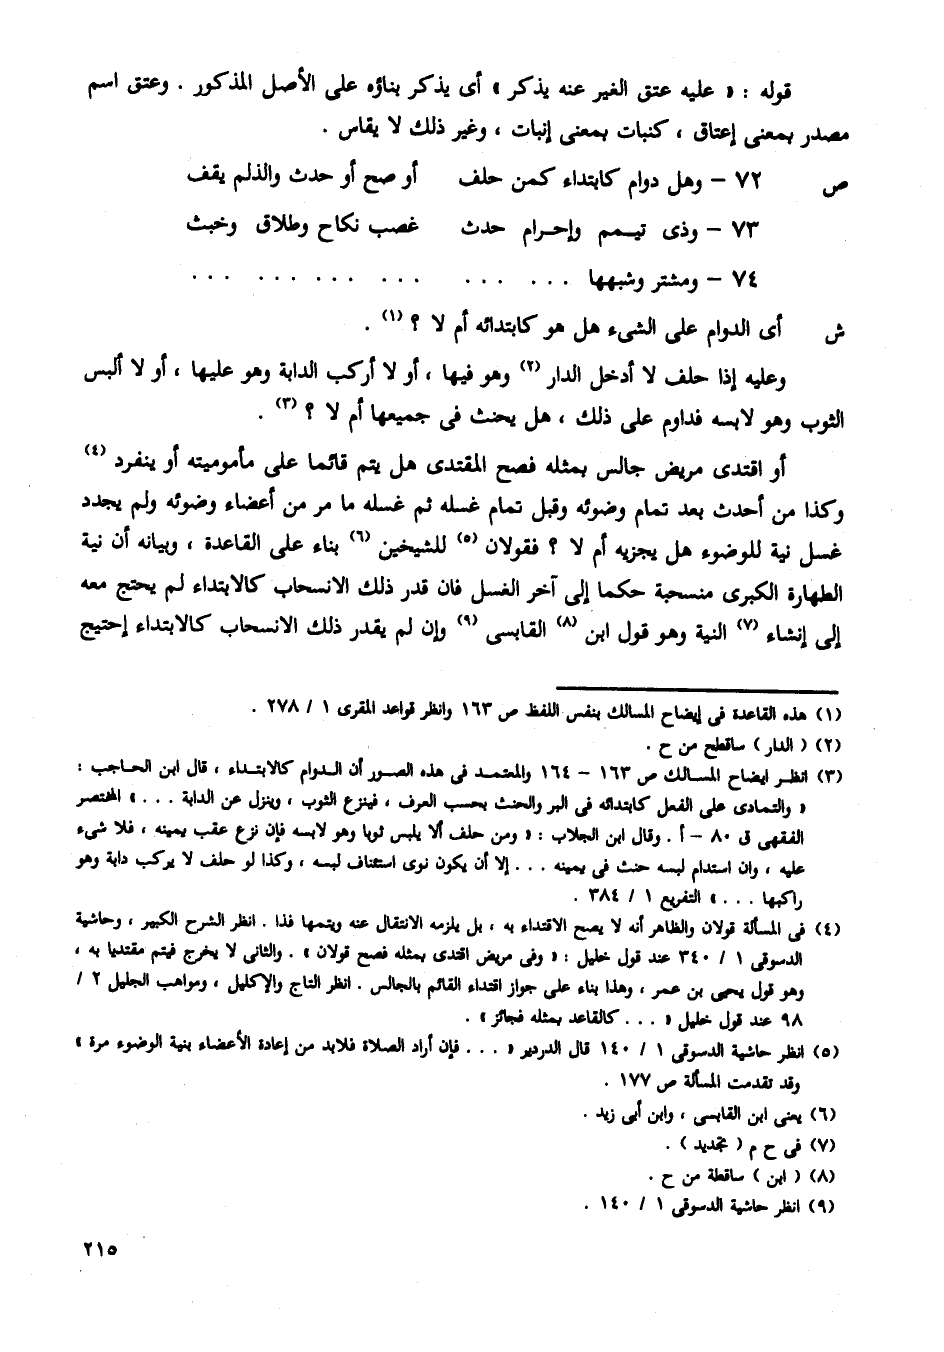 قوله : « عليه عتق الغير عنه يذكر » أى يذكر بناؤه على الأصل المذكور . وعتق اسم
مصدر بمعنى إعتاق ، كنبات بمعنى إنبات ، وغير ذلك لا يقاس .
ص ٧٢ – وهل دوام كابتداء كمن حلف أو صح أو حدث والذلم يقف
٧٣ – وذى تيمم وإحرام حدث غصب نكاح وطلاق وخبث
٧٤ – ومشتر وشبهها ... ... ... ... ... ...
ش أى الدوام على الشىء هل هو كابتدائه أم لا ؟ (١) .
وعليه إذا حلف لا أدخل الدار (٢) وهو فيها ، أو لا أركب الدابة وهو عليها ، أو لا ألبس
الثوب وهو لابسه فداوم على ذلك ، هل يحنث فى جميعها أم لا ؟ (٣) .
أو اقتدى مريض جالس بمثله فصح المقتدى هل يتم قائما على مأموميته أو ينفرد (٤)
وكذا من أحدث بعد تمام وضوئه وقبل تمام غسله ثم غسله ما مر من أعضاء وضوئه ولم يجدد
غسل نية للوضوء هل يجزيه أم لا ؟ فقولان (٥) للشيخين (٦) بناء على القاعدة ، وبيانه أن نية
الطهارة الكبرى منسحبة حكما إلى آخر الغسل فان قدر ذلك الانسحاب كالابتداء لم يحتج معه
إلى إنشاء (٧) النية وهو قول ابن (٨) القابسى (٩) وإن لم يقدر ذلك الانسحاب كالابتداء إحتيج
(١) هذه القاعدة فى إيضاح المسالك بنفس اللفظ ص ١٦٣ وانظر قواعد المقرى ١ / ٢٧٨ .
(٢) ( الدار ) ساقطح من ح .
(٣) انظر ايضاح المسالك ص ١٦٣ – ١٦٤ والمعتمد فى هذه الصور أن الدوام كالابتداء ، قال ابن الحاجب :
« والتمادى على الفعل كابتدائه فى البر والحنث بحسب العرف ، فينزع الثوب ، وينزل عن الدابة ... » المختصر
الفقهى ق ٨٠ – أ . وقال ابن الجلاب : « ومن حلف ألا يلبس ثوبا وهو لابسه فإن نزع عقب يمينه ، فلا شىء
عليه ، وان استدام لبسه حنث فى يمينه ... إلا أن يكون نوى استئناف لبسه ، وكذا لو حلف لا يركب دابة وهو
راكبها ... » التفريع ١ / ٣٨٤ .
(٤) فى المسألة قولان والظاهر أنه لا يصح الاقتداء به ، بل يلزمه الانتقال عنه ويتمها فذا . انظر الشرح الكبير ، وحاشية
الدسوقى ١ / ٣٤٠ عند قول خليل : « وفى مريض اقتدى بمثله فصح قولان » . والثانى لا يخرج فيتم مقتديا به ،
وهو قول يحيى بن عمر ، وهذا بناء على جواز اقتداء القائم بالجالس . انظر التاج والإكليل ، ومواهب الجليل ٢ /
٩٨ عند قول خليل « ... كالقاعد بمثله فجائز » .
(٥) انظر حاشية الدسوقى ١ / ١٤٠ قال الدردير « ... فإن أراد الصلاة فلابد من إعادة الأعضاء بنية الوضوء مرة »
وقد تقدمت المسألة ص ١٧٧ .
(٦) يعنى ابن القابسى ، وابن أبى زيد .
(٧) فى ح م ( تجديد ) .
(٨) ( ابن ) ساقطة من ح .
(٩) انظر حاشية الدسوقى ١ / ١٤٠ .
٢١٥